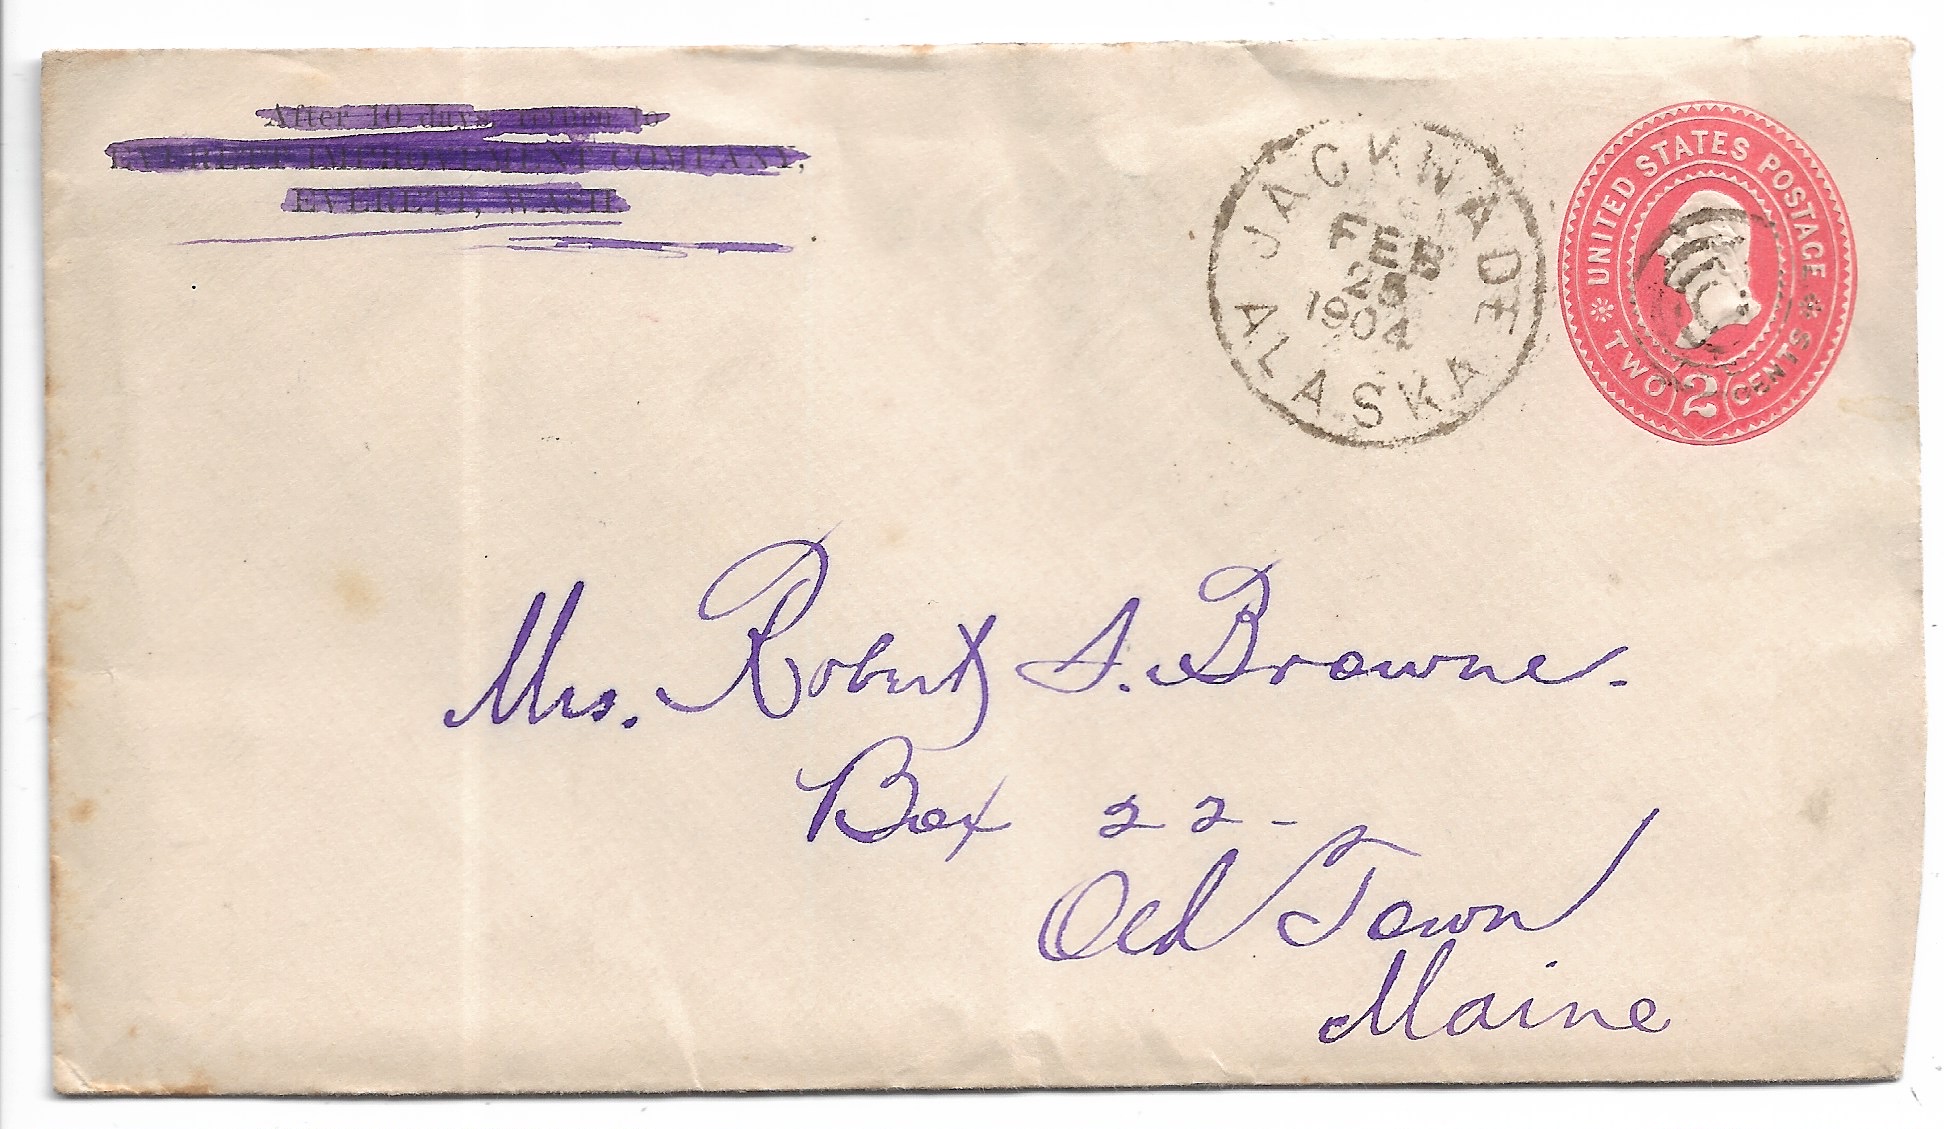 After 10 days, return to
EVERETT IMPROVEMENT COMPANY,
EVERETT, WASH.
JACK WADE
FEB
1904
ALASKA
UNITED STATES POSTAGE
TWO 2 CENTS
Mrs. Robert S. Browne.
Box 22-
Old Town
Maine